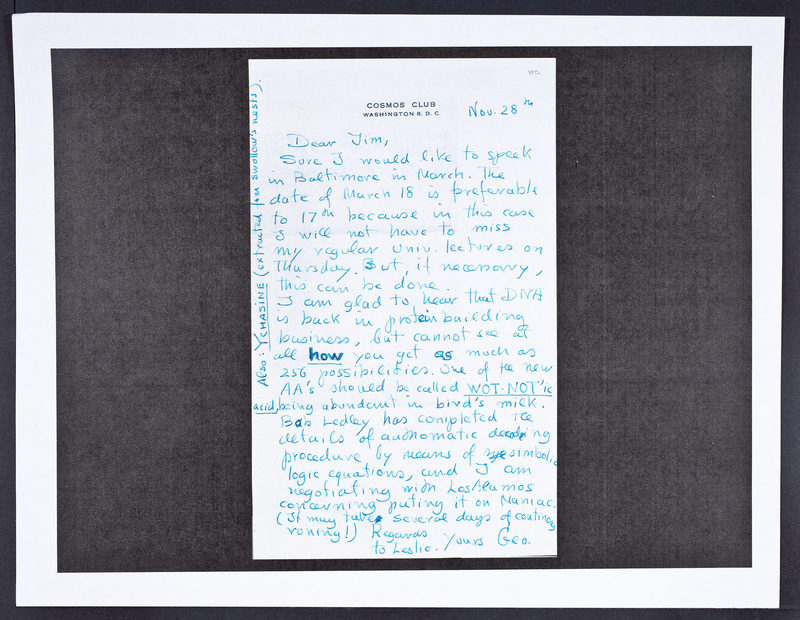 COSMOS CLUB
WASHINGTON 5. D. C.
Nov. 28th
Dear Jim,
Sure I would like to speek
in Baltimore in March. The
date of March 18 is preferable
to 17th because in this case
I will not have to miss
my regular Univ. lectures on
Thursday. But, if necessary,
this can be done.
I am glad to hear that DNA
is back in protein building
business, but cannot see at
all how you get as much as
256 possibilities. One of the new
AA's should be called WOT-NOT'ic
acid, being abundant in bird's milk.
Bob Ledley has completed the
details of authomatic decoding
procedure by means of simbolic
logic equations, and I am
negotiating with Los Alamos
concerning puting it on Maniac.
(It may take several days of continous
runing!) Regards
to Leslie. Yours Geo.
Also: YCHASINE (extracted from swallow's nests).